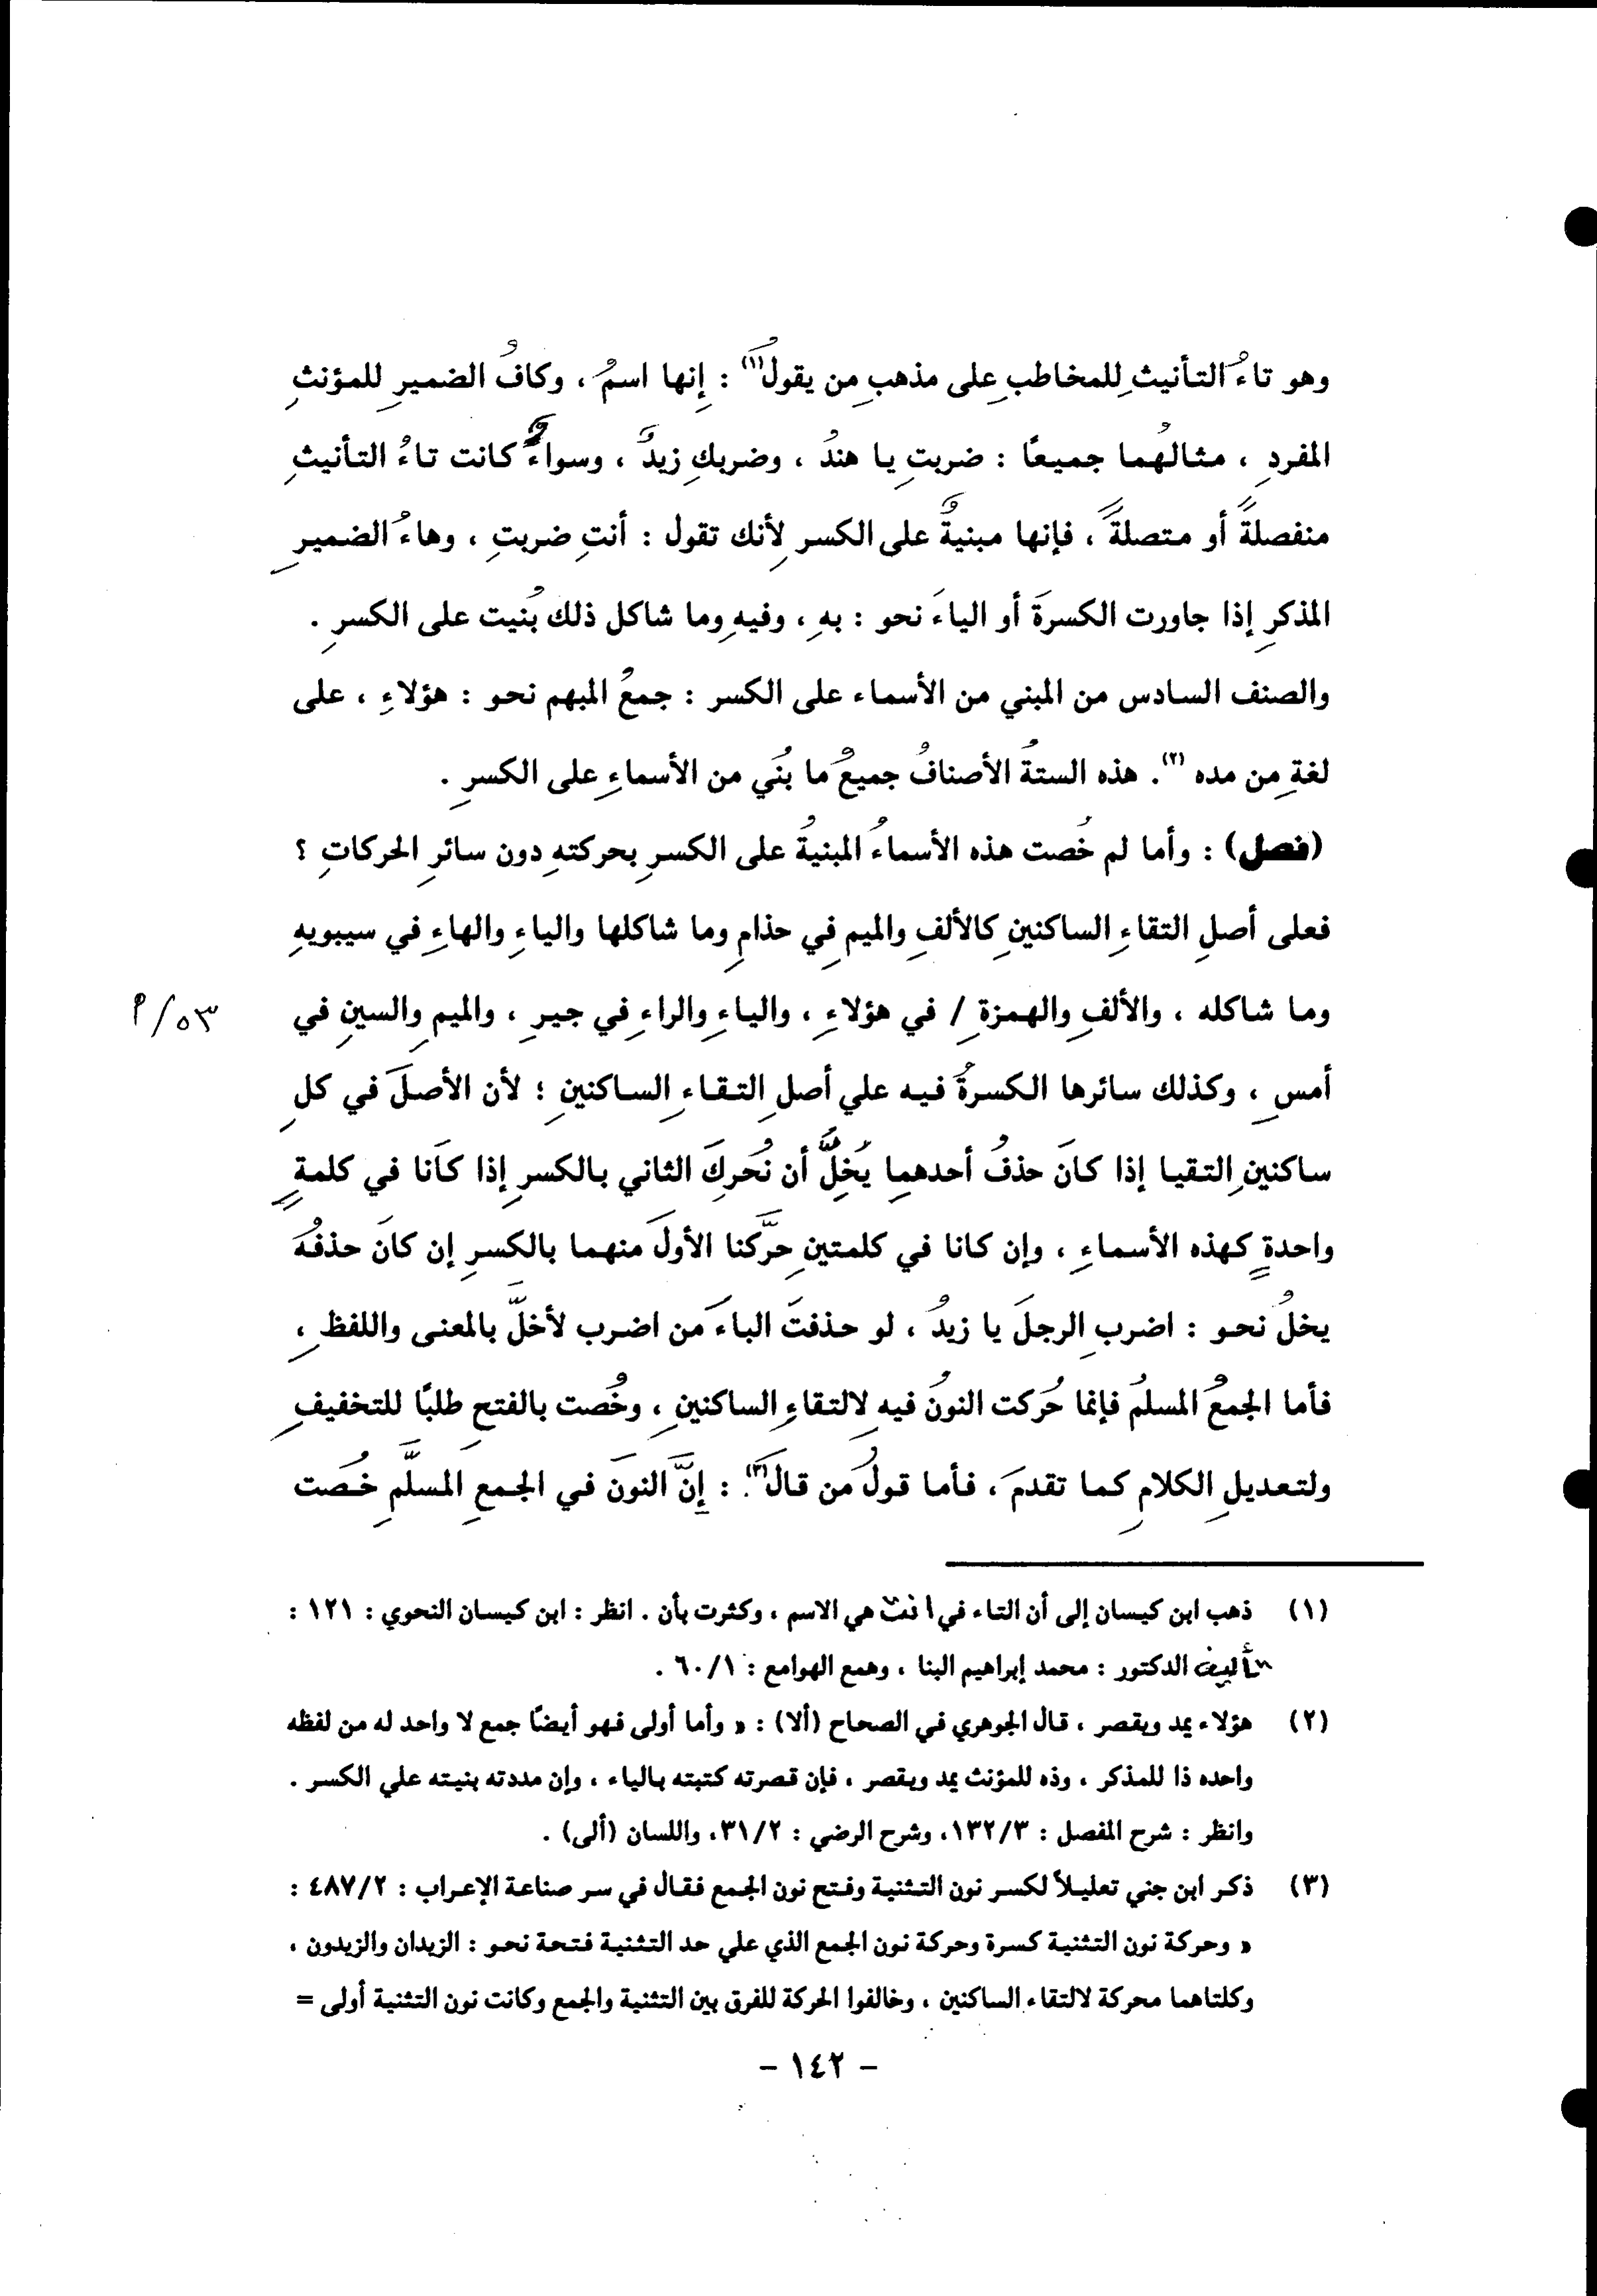 وهو تاءُ التأنيثِ للمخاطبِ على مذهبِ من يقولُ(١) : إنها اسمٌ ، وكافُ الضميرِ للمؤنثِ
المفردِ ، مثالهُما جميعًا : ضربتِ يا هندُ ، وضربكِ زيدٌ ، وسواءٌ كانت تاءُ التأنيثِ
منفصلةً أو متصلةً ، فإنها مبنيةٌ على الكسرِ لأنك تقول : أنتِ ضربتِ ، وهاءُ الضميرِ
المذكرِ إذا جاورت الكسرةَ أو الياءَ نحو : بهِ ، وفيهِ وما شاكل ذلك بُنيت على الكسرِ .
والصنف السادس من المبني من الأسماء على الكسر : جمعُ المبهم نحو : هؤلاءِ ، على
لغةِ من مده (٢). هذه الستةُ الأصنافُ جميعُ ما بُنَي من الأسماءِ على الكسرِ .
(فصل) : وأما لم خُصت هذه الأسماءُ المبنيةُ على الكسرِ بحركتهِ دون سائرِ الحركاتِ ؟
فعلى أصلِ التقاءِ الساكنينِ كالألفِ والميمِ في حذامِ وما شاكلها والياءِ والهاءِ في سيبويهِ
وما شاكله ، والألفِ والهمزةِ / في هؤلاءِ ، والياءِ والراءِ في جيرِ ، والميمِ والسينِ في
٥٣/أ
أمسِ ، وكذلك سائرها الكسرةُ فيه علي أصلِ التقاءِ الساكنينِ ؛ لأن الأصلَ في كلِ
ساكنينِ التقيا إذا كانَ حذفُ أحدهما يُخِلُّ أن نُحَركَ الثاني بالكسرِ إذا كانا في كلمةٍ
واحدةٍ كهذه الأسماءِ ، وإن كانا في كلمتينِ حرَّكنا الأولَ منهما بالكسرِ إن كانَ حذفُهَ
يخلُ نحو : اضربِ الرجلَ يا زيدُ ، لو حذفتَ الباءَ من اضرب لأخلَّ بالمعنى واللفظِ ،
فأما الجمعُ المسلمُ فإنما حُركت النونُ فيهِ لالتقاءِ الساكنينِ ، وخُصت بالفتحِ طلبًا للتخفيفِ
ولتعديلِ الكلامِ كما تقدمَ ، فأما قولُ من قالَ(٣) : إنَّ النونَ في الجمعِ المسلَّمِ خُصت
(١) ذهب ابن كيسان إلى أن التاء في أنت هي الاسم ، وكثرت بأن . انظر : ابن كيسان النحوي : ١٢١ :
تأليف الدكتور : محمد إبراهيم البنا ، وهمع الهوامع : ٦٠/١ .
(٢) هؤلاء يمد ويقصر ، قال الجوهري في الصحاح (ألا) : « وأما أولى فهو أيضًا جمع لا واحد له من لفظه
واحده ذا للمذكر ، وذه للمؤنث يمد ويقصر ، فإن قصرته كتبته بالياء ، وإن مددته بنيته علي الكسر .
وانظر : شرح المفصل : ١٣٢/٣، وشرح الرضي : ٣١/٢، واللسان (ألى) .
(٣) ذكر ابن جني تعليلاً لكسر نون التثنية وفتح نون الجمع فقال في سر صناعة الإعراب : ٤٨٧/٢ :
« وحركة نون التثنية كسرة وحركة نون الجمع الذي علي حد التثنية فتحة نحو : الزيدان والزيدون ،
وكلتاهما محركة لالتقاء الساكنين ، وخالفوا الحركة للفرق بين التثنية والجمع وكانت نون التثنية أولى =
- ١٤٢ -